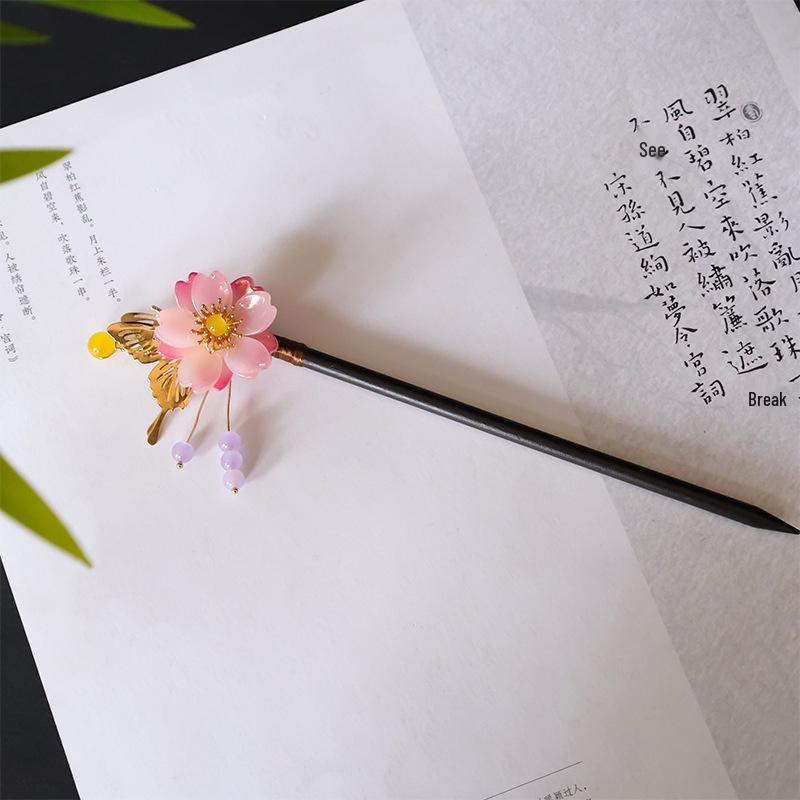 翠柏紅蕉影亂月
風自碧空來吹落歌珠一
不 See 不見人被繡簾遮 Break
宋孫道絢如夢令宮詞
翠柏红蕉影乱。月上朱栏一半。
风自碧空来，吹落歌珠一串。
见。人被绣帘遮断。
令·宫词》
颖过人，